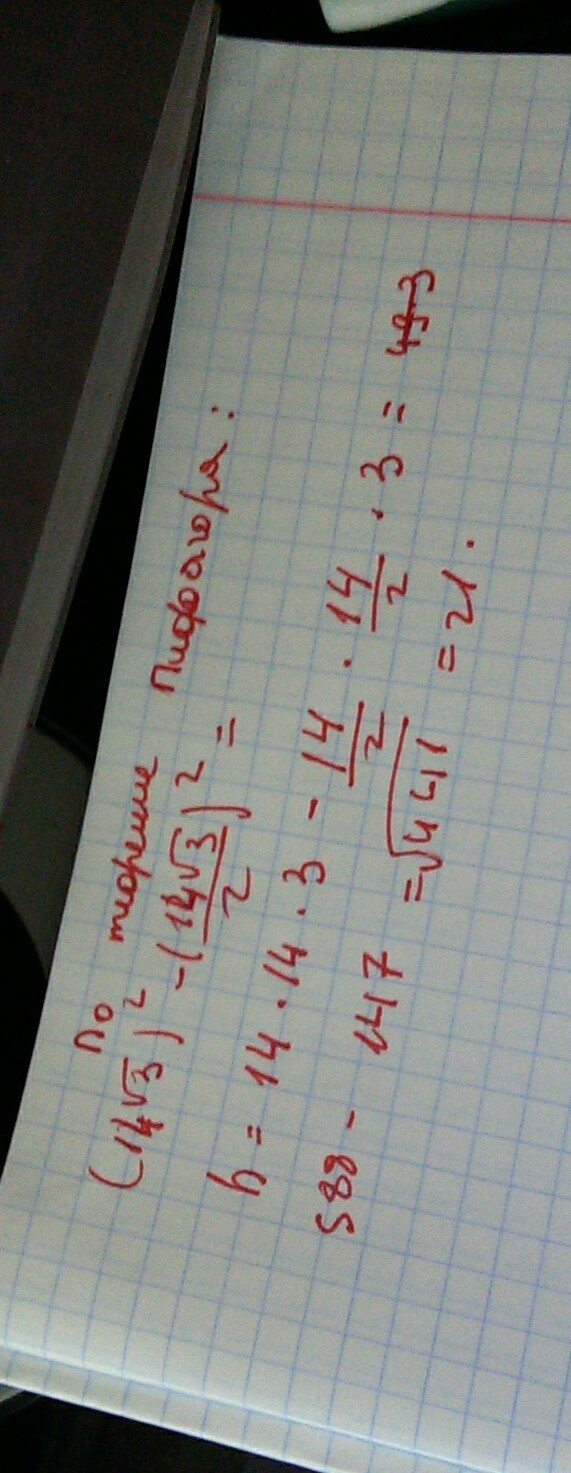 По теореме Пифагора:
(14√3)² - (14√3/2)² =
h = 14 · 14 · 3 - 14/2 · 14/2 · 3 = 49·3
588 - 147 = √441 = 21.